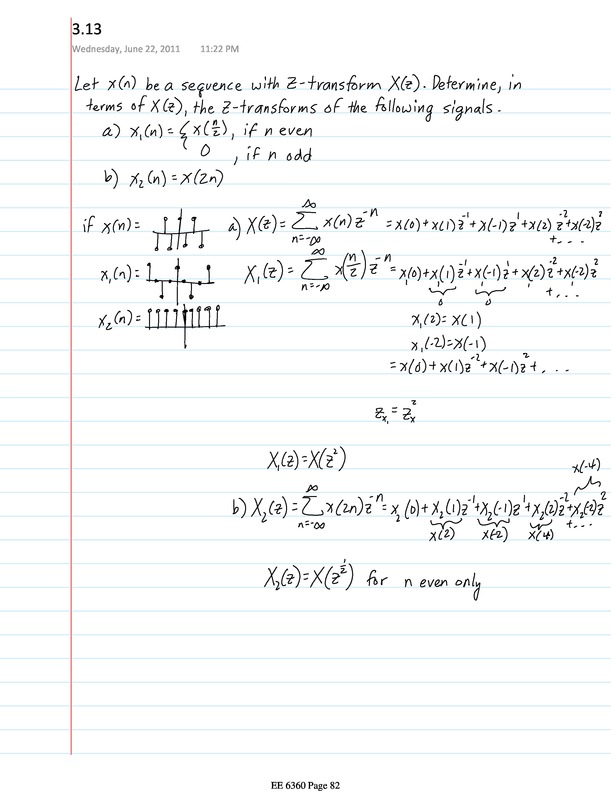 3.13
Wednesday, June 22, 2011 11:22 PM
Let x(n) be a sequence with Z-transform X(z). Determine, in
terms of X(z), the Z-transforms of the following signals.
a) x₁(n) = { x(n/2), if n even
0 , if n odd
b) x₂(n) = x(2n)
if x(n) = a) X(z) = ∑_{n=-∞}^{∞} x(n) z^{-n} = x(0) + x(1)z^{-1} + x(-1)z^{1} + x(2)z^{-2} + x(-2)z^{2}
+ . . .
x₁(n) = X₁(z) = ∑_{n=-∞}^{∞} x(n/2) z^{-n} = x₁(0) + x₁(1)z^{-1} + x₁(-1)z^{1} + x₁(2)z^{-2} + x₁(-2)z^{2}
0 0 + . . .
x₂(n) =
x₁(2) = x(1)
x₁(-2) = x(-1)
= x(0) + x(1)z^{-2} + x(-1)z^{2} + . . .
z_{x₁} = z_x^{2}
X₁(z) = X(z²)
x(-4)
b) X₂(z) = ∑_{n=-∞}^{∞} x(2n) z^{-n} = x₂(0) + x₂(1)z^{-1} + x₂(-1)z^{1} + x₂(2)z^{-2} + x₂(-2)z^{2}
x(2) x(-2) x(4) + . . .
X₂(z) = X(z^{1/2}) for n even only
EE 6360 Page 82